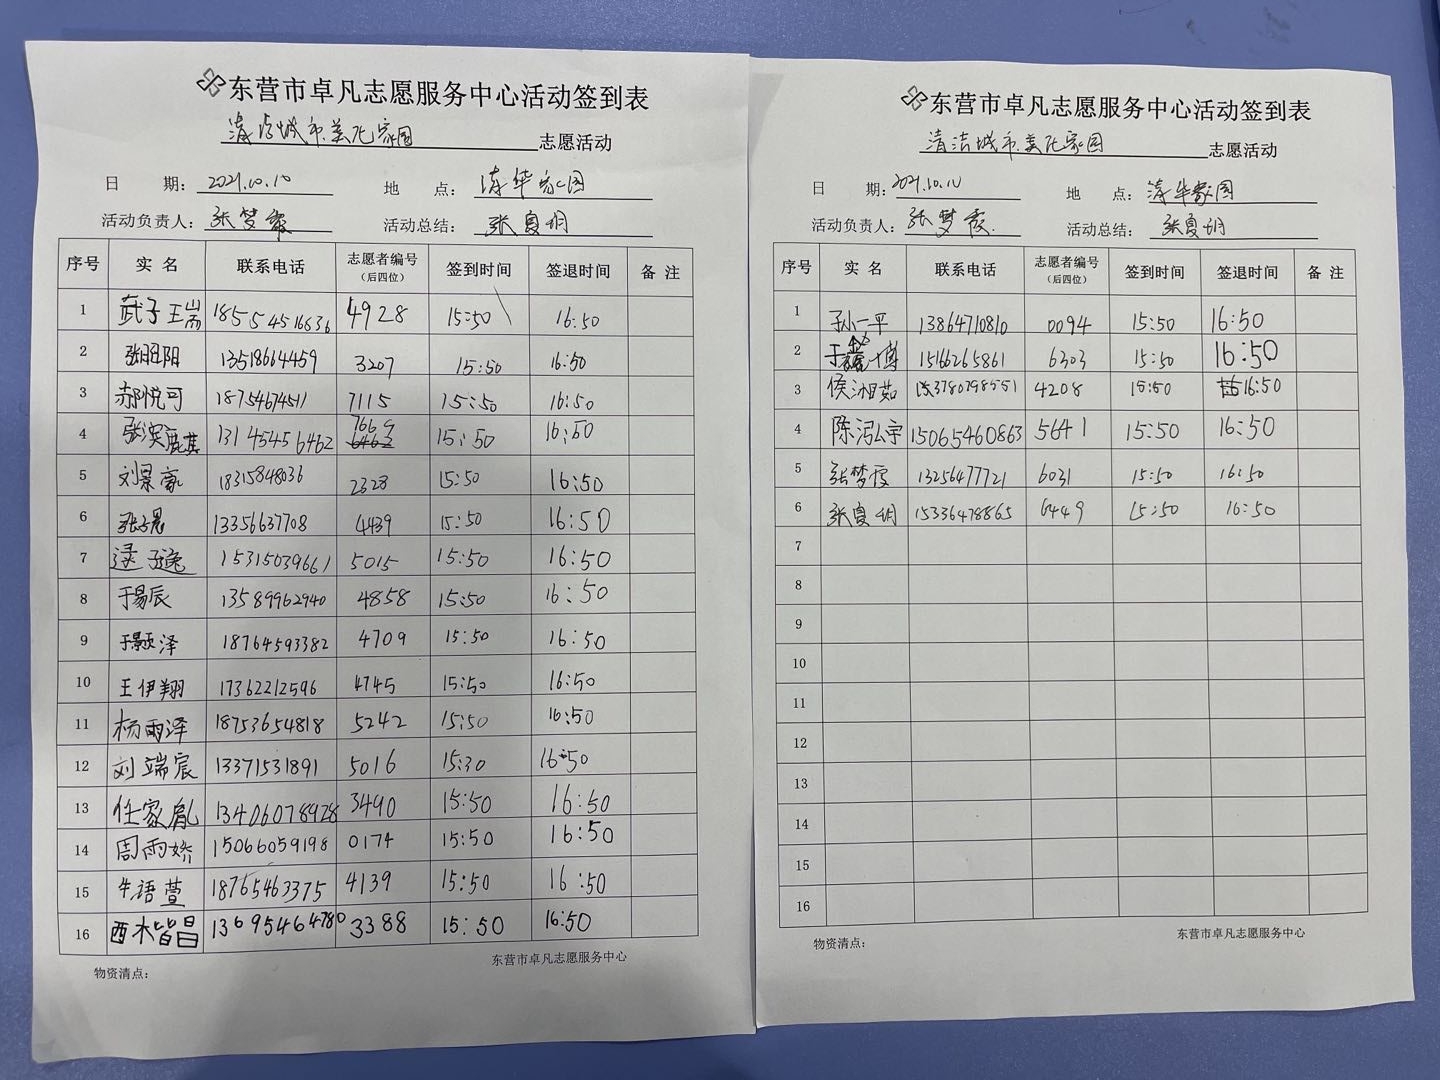 东营市卓凡志愿服务中心活动签到表
清洁城市.美化家园 志愿活动
日 期: 2021.10.10 地 点: 清华家园
活动负责人: 张梦霞 活动总结: 张夏明
序号 实 名 联系电话 志愿者编号 (后四位) 签到时间 签退时间 备 注
1 武子瑞 18554516636 4928 15:50 16:50
2 张昭阳 13518664459 3207 15:50 16:50
3 郝悦可 18754674511 7115 15:50 16:50
4 13145456462 7669 15:50 16:50
5 刘景豪 18315848036 2328 15:50 16:50
6 张子晨 13356637708 4439 15:50 16:50
7 逯子逸 15315039661 5015 15:50 16:50
8 于易辰 13589962940 4858 15:50 16:50
9 于颢泽 18764593382 4709 15:50 16:50
10 王伊翔 17362212596 4745 15:50 16:50
11 杨雨泽 18753654818 5242 15:50 16:50
12 刘端宸 13371531891 5016 15:30 16:50
13 任家胤 13406078928 3490 15:50 16:50
14 周雨娇 15066059198 0174 15:50 16:50
15 牛语萱 18765463375 4139 15:50 16:50
16 西木皆昌 13695464780 3388 15:50 16:50
物资清点: 东营市卓凡志愿服务中心
东营市卓凡志愿服务中心活动签到表
清洁城市.美化家园 志愿活动
日 期: 2021.10.10 地 点: 清华家园
活动负责人: 张梦霞. 活动总结: 张夏明
序号 实 名 联系电话 志愿者编号 (后四位) 签到时间 签退时间 备 注
1 孙一平 13864710810 0094 15:50 16:50
2 于鑫博 15166265861 6303 15:50 16:50
3 侯湘茹 15378079 4208 15:50 16:50
4 陈泓宇 15065460863 5641 15:50 16:50
5 张梦霞 13256477721 6031 15:50 16:50
6 张夏明 15336478865 6449 15:50 16:50
7
8
9
10
11
12
13
14
15
16
物资清点: 东营市卓凡志愿服务中心